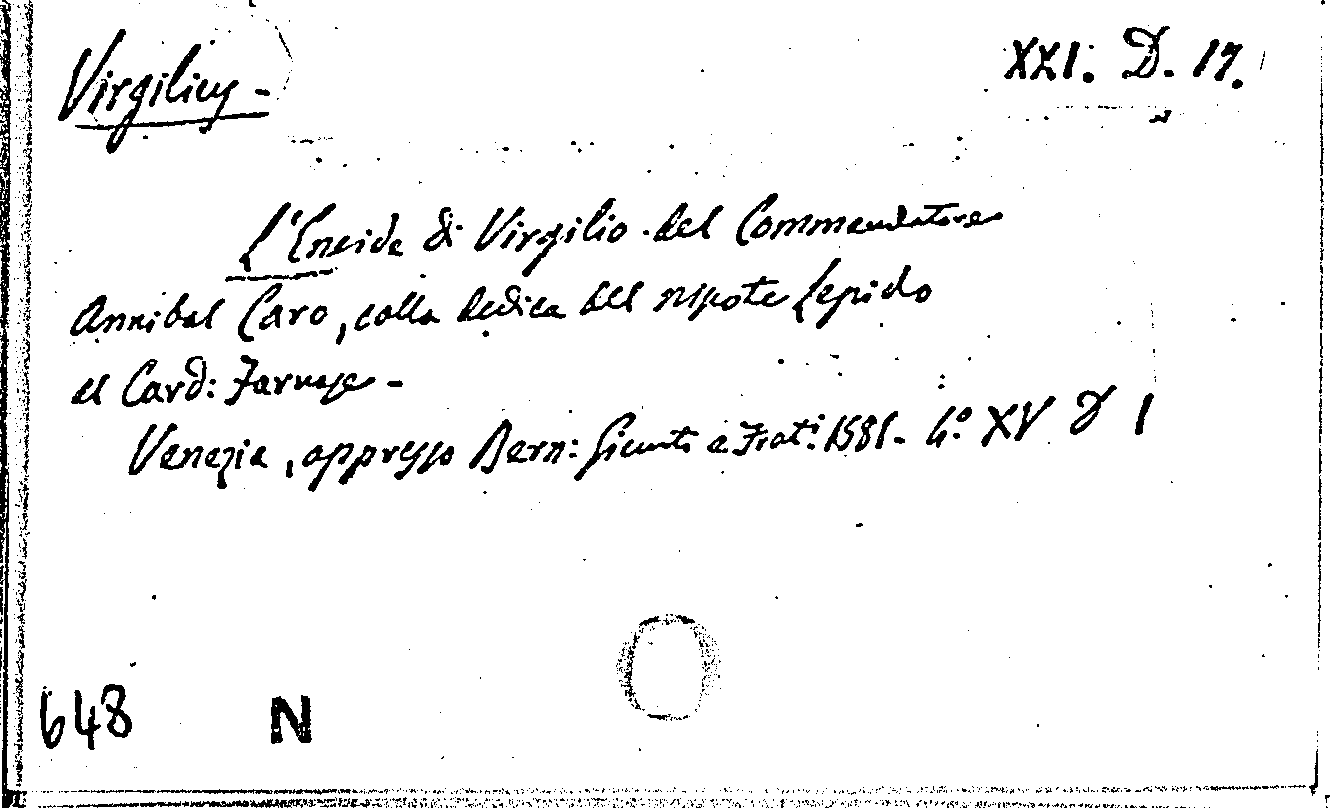 Virgilius - XXI. D. 17.
L'Eneide di Virgilio del Commendatore
Annibal Caro, colla dedica del nipote Lepido
al Card: Farnese -
Venezia, appresso Bern: Giunti e Frat: 1581. 4º XV D 1
648 N